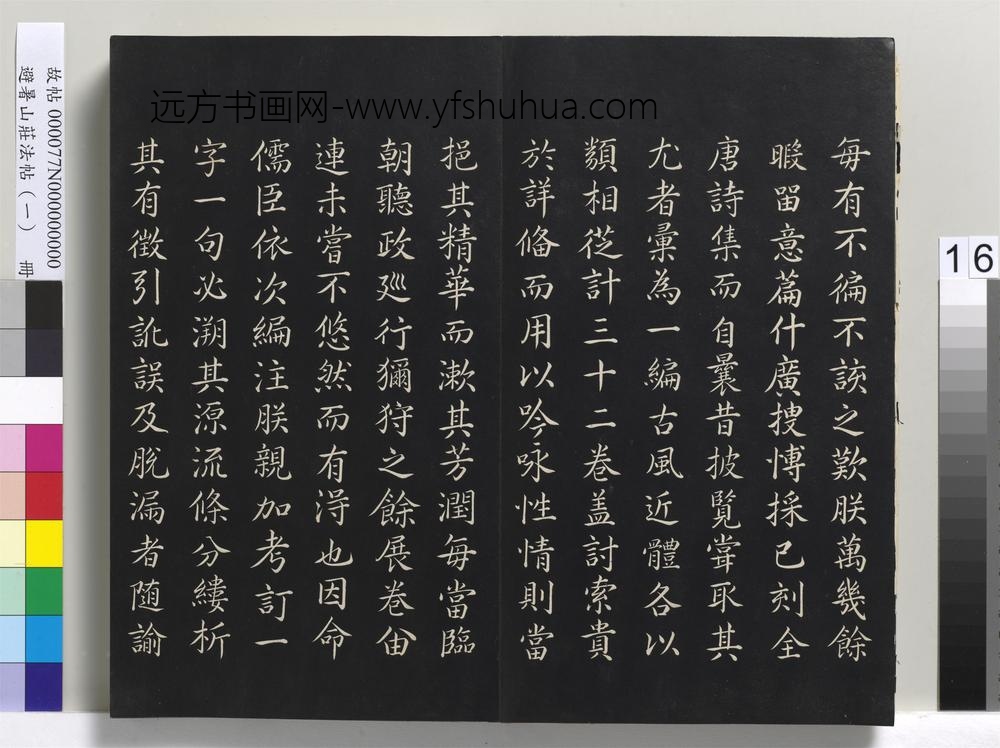 远方书画网-www.yfshuhua.com
每有不徧不該之歎朕萬幾餘
暇留意篇什廣搜博採已刻全
唐詩集而自曩昔披覽嘗取其
尤者彙為一編古風近體各以
類相從計三十二卷盖討索貴
於詳俻而用以吟咏性情則當
挹其精華而漱其芳潤每當臨
朝聽政廵行獮狩之餘展卷留
連未嘗不悠然而有淂也因命
儒臣依次編注朕親加考訂一
字一句必溯其源流條分縷析
其有徵引訛誤及脫漏者随諭
故帖000077N000000000
避暑山莊法帖(一) 冊
16